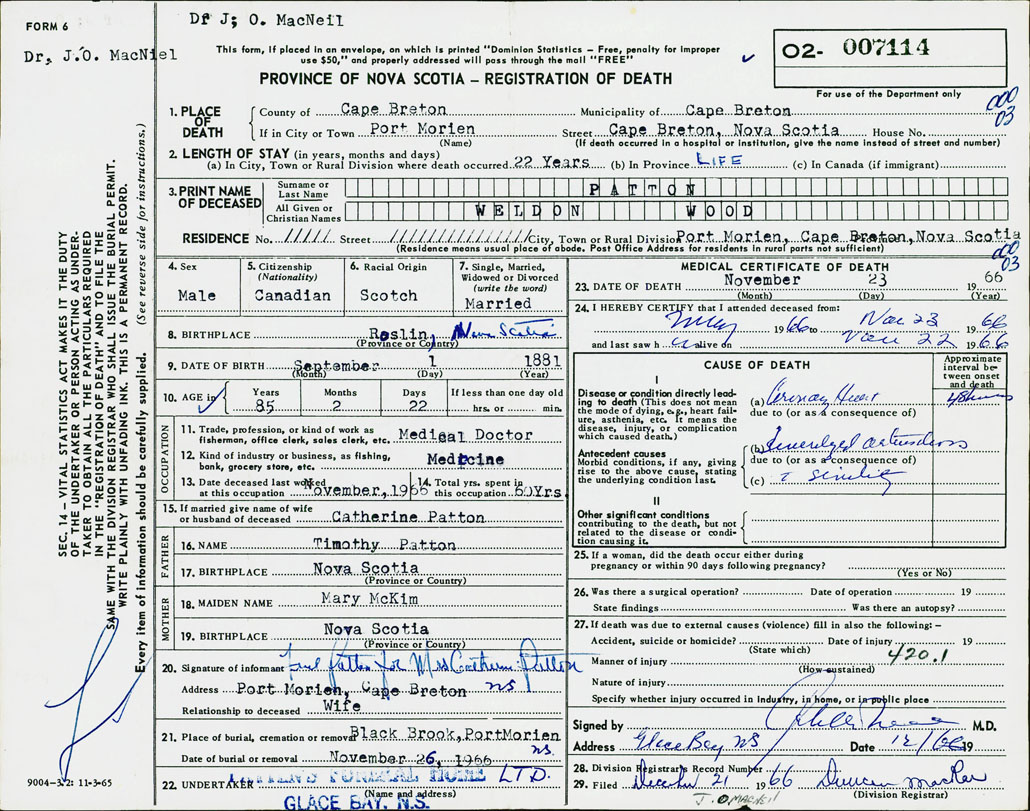 FORM 6
Df J; O. MacNeil
Dr, J.O. MacNiel
This form, if placed in an envelope, on which is printed "Dominion Statistics – Free, penalty for improper
use $50," and properly addressed will pass through the mail "FREE"
PROVINCE OF NOVA SCOTIA – REGISTRATION OF DEATH
02- 007114
For use of the Department only
000
03
1. PLACE OF DEATH
County of Cape Breton Municipality of Cape Breton
If in City or Town Port Morien Street Cape Breton, Nova Scotia House No.
(Name) (If death occurred in a hospital or institution, give the name instead of street and number)
2. LENGTH OF STAY (in years, months and days)
(a) In City, Town or Rural Division where death occurred 22 Years (b) In Province LIFE (c) In Canada (if immigrant)
3. PRINT NAME OF DECEASED
Surname or Last Name PATTON
All Given or Christian Names WELDON WOOD
RESIDENCE No. ///// Street //////////////// City, Town or Rural Division Port Morien, Cape Breton, Nova Scotia
(Residence means usual place of abode. Post Office Address for residents in rural ports not sufficient)
000
03
4. Sex
Male
5. Citizenship
(Nationality)
Canadian
6. Racial Origin
Scotch
7. Single, Married,
Widowed or Divorced
(write the word)
Married
8. BIRTHPLACE Roslin, Nova Scotia
(Province or Country)
9. DATE OF BIRTH September 1 1881
(Month) (Day) (Year)
10. AGE in
Years Months Days If less than one day old
85 2 22 hrs. or min.
OCCUPATION
11. Trade, profession, or kind of work as
fisherman, office clerk, sales clerk, etc. Medical Doctor
12. Kind of industry or business, as fishing,
bank, grocery store, etc. Medicine
13. Date deceased last worked
at this occupation November, 1966
14. Total yrs. spent in
this occupation 60Yrs.
15. If married give name of wife
or husband of deceased Catherine Patton
FATHER
16. NAME Timothy Patton
17. BIRTHPLACE Nova Scotia
(Province or Country)
MOTHER
18. MAIDEN NAME Mary McKim
19. BIRTHPLACE Nova Scotia
(Province or Country)
20. Signature of informant Patton for Mrs Catherine Patton
Address Port Morien, Cape Breton NS
Relationship to deceased Wife
21. Place of burial, cremation or removal Black Brook, PortMorien
NS.
Date of burial or removal November 26, 1966
22. UNDERTAKER FUNERAL HOME LTD.
(Name and address)
GLACE BAY, N.S.
MEDICAL CERTIFICATE OF DEATH
23. DATE OF DEATH November 23 1966
(Month) (Day) (Year)
24. I HEREBY CERTIFY that I attended deceased from:
May 1966 to Nov 23 1966
and last saw h alive on Nov 22 1966
CAUSE OF DEATH
Approximate
interval be-
tween onset
and death
I
Disease or condition directly lead-
ing to death (This does not mean
the mode of dying, e.g., heart fail-
ure, asthenia, etc. It means the
disease, injury, or complication
which caused death.)
(a) Heart
48 hours
due to (or as a consequence of)
Antecedent causes
Morbid conditions, if any, giving
rise to the above cause, stating
the underlying condition last.
(b) Generalyzed
due to (or as a consequence of)
(c) senility
II
Other significant conditions
contributing to the death, but not
related to the disease or condi-
tion causing it.
25. If a woman, did the death occur either during
pregnancy or within 90 days following pregnancy?
(Yes or No)
26. Was there a surgical operation? Date of operation 19
State findings Was there an autopsy?
27. If death was due to external causes (violence) fill in also the following:–
Accident, suicide or homicide? Date of injury 19
(State which)
420.1
Manner of injury
(How sustained)
Nature of injury
Specify whether injury occurred in industry, in home, or in public place
Signed by M.D.
Address Glace Bay NS Date 19
28. Division Registrar's Record Number
29. Filed December 21 1966
(Division Registrar)
J. O MACNEIL
SEC. 14 – VITAL STATISTICS ACT MAKES IT THE DUTY
OF THE UNDERTAKER OR PERSON ACTING AS UNDER-
TAKER TO OBTAIN ALL THE PARTICULARS REQUIRED
IN THE "REGISTRATION OF DEATH" AND TO FILE THE
SAME WITH THE DIVISION REGISTRAR WHO SHALL ISSUE THE BURIAL PERMIT.
WRITE PLAINLY WITH UNFADING INK. THIS IS A PERMANENT RECORD.
Every item of information should be carefully supplied. (See reverse side for instructions.)
9004-3.2: 11-3-65